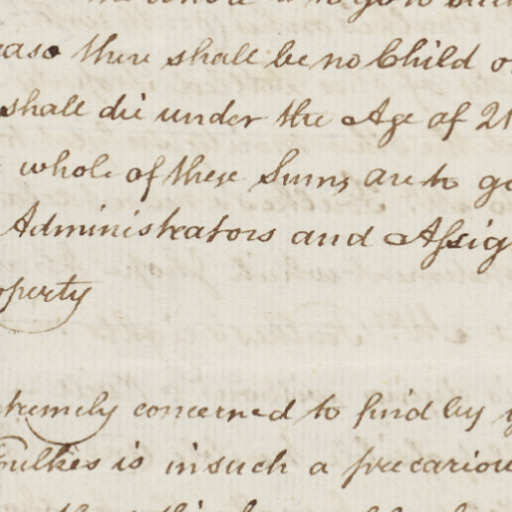 the whole is to go to such
case there shall be no Child or
shall die under the Age of 21
whole of these Sums are to go
Administrators and Assig
operty
tremely concerned to find by y
Foulkes is in such a precariou